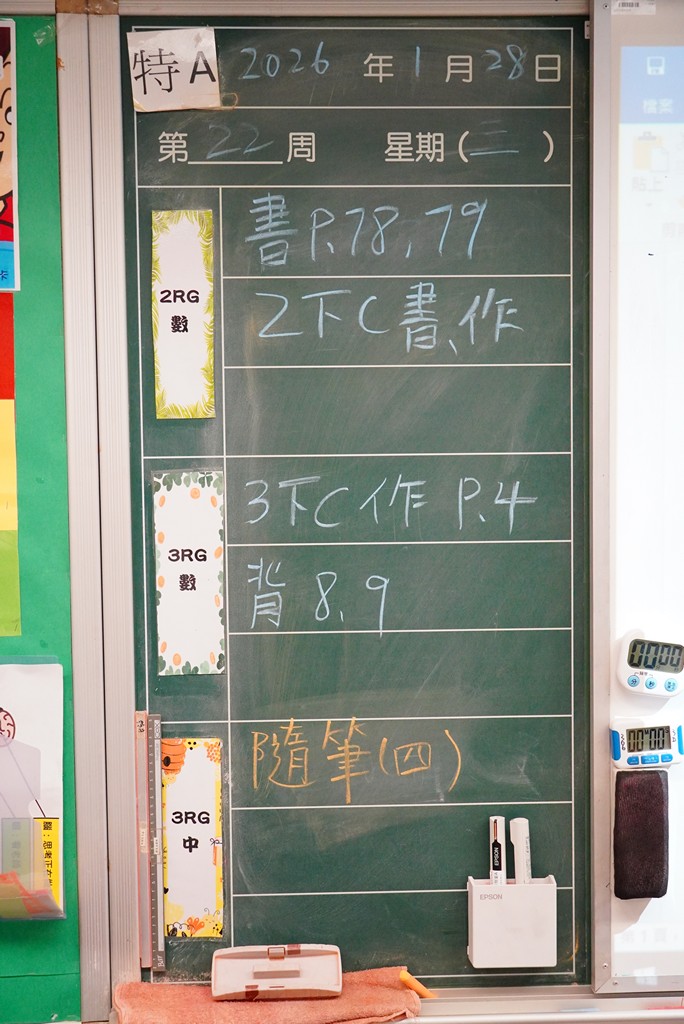 特A 2026 年 1 月 28 日
第 22 周 星期(三)
2RG
數
書 P.78, 79
2下C 書、作
3RG
數
3下C 作 P.4
背 8、9
3RG
中
隨筆(四)
EPSON
EPSON
檔案
貼上
00 00
00 00
腦：思考正在